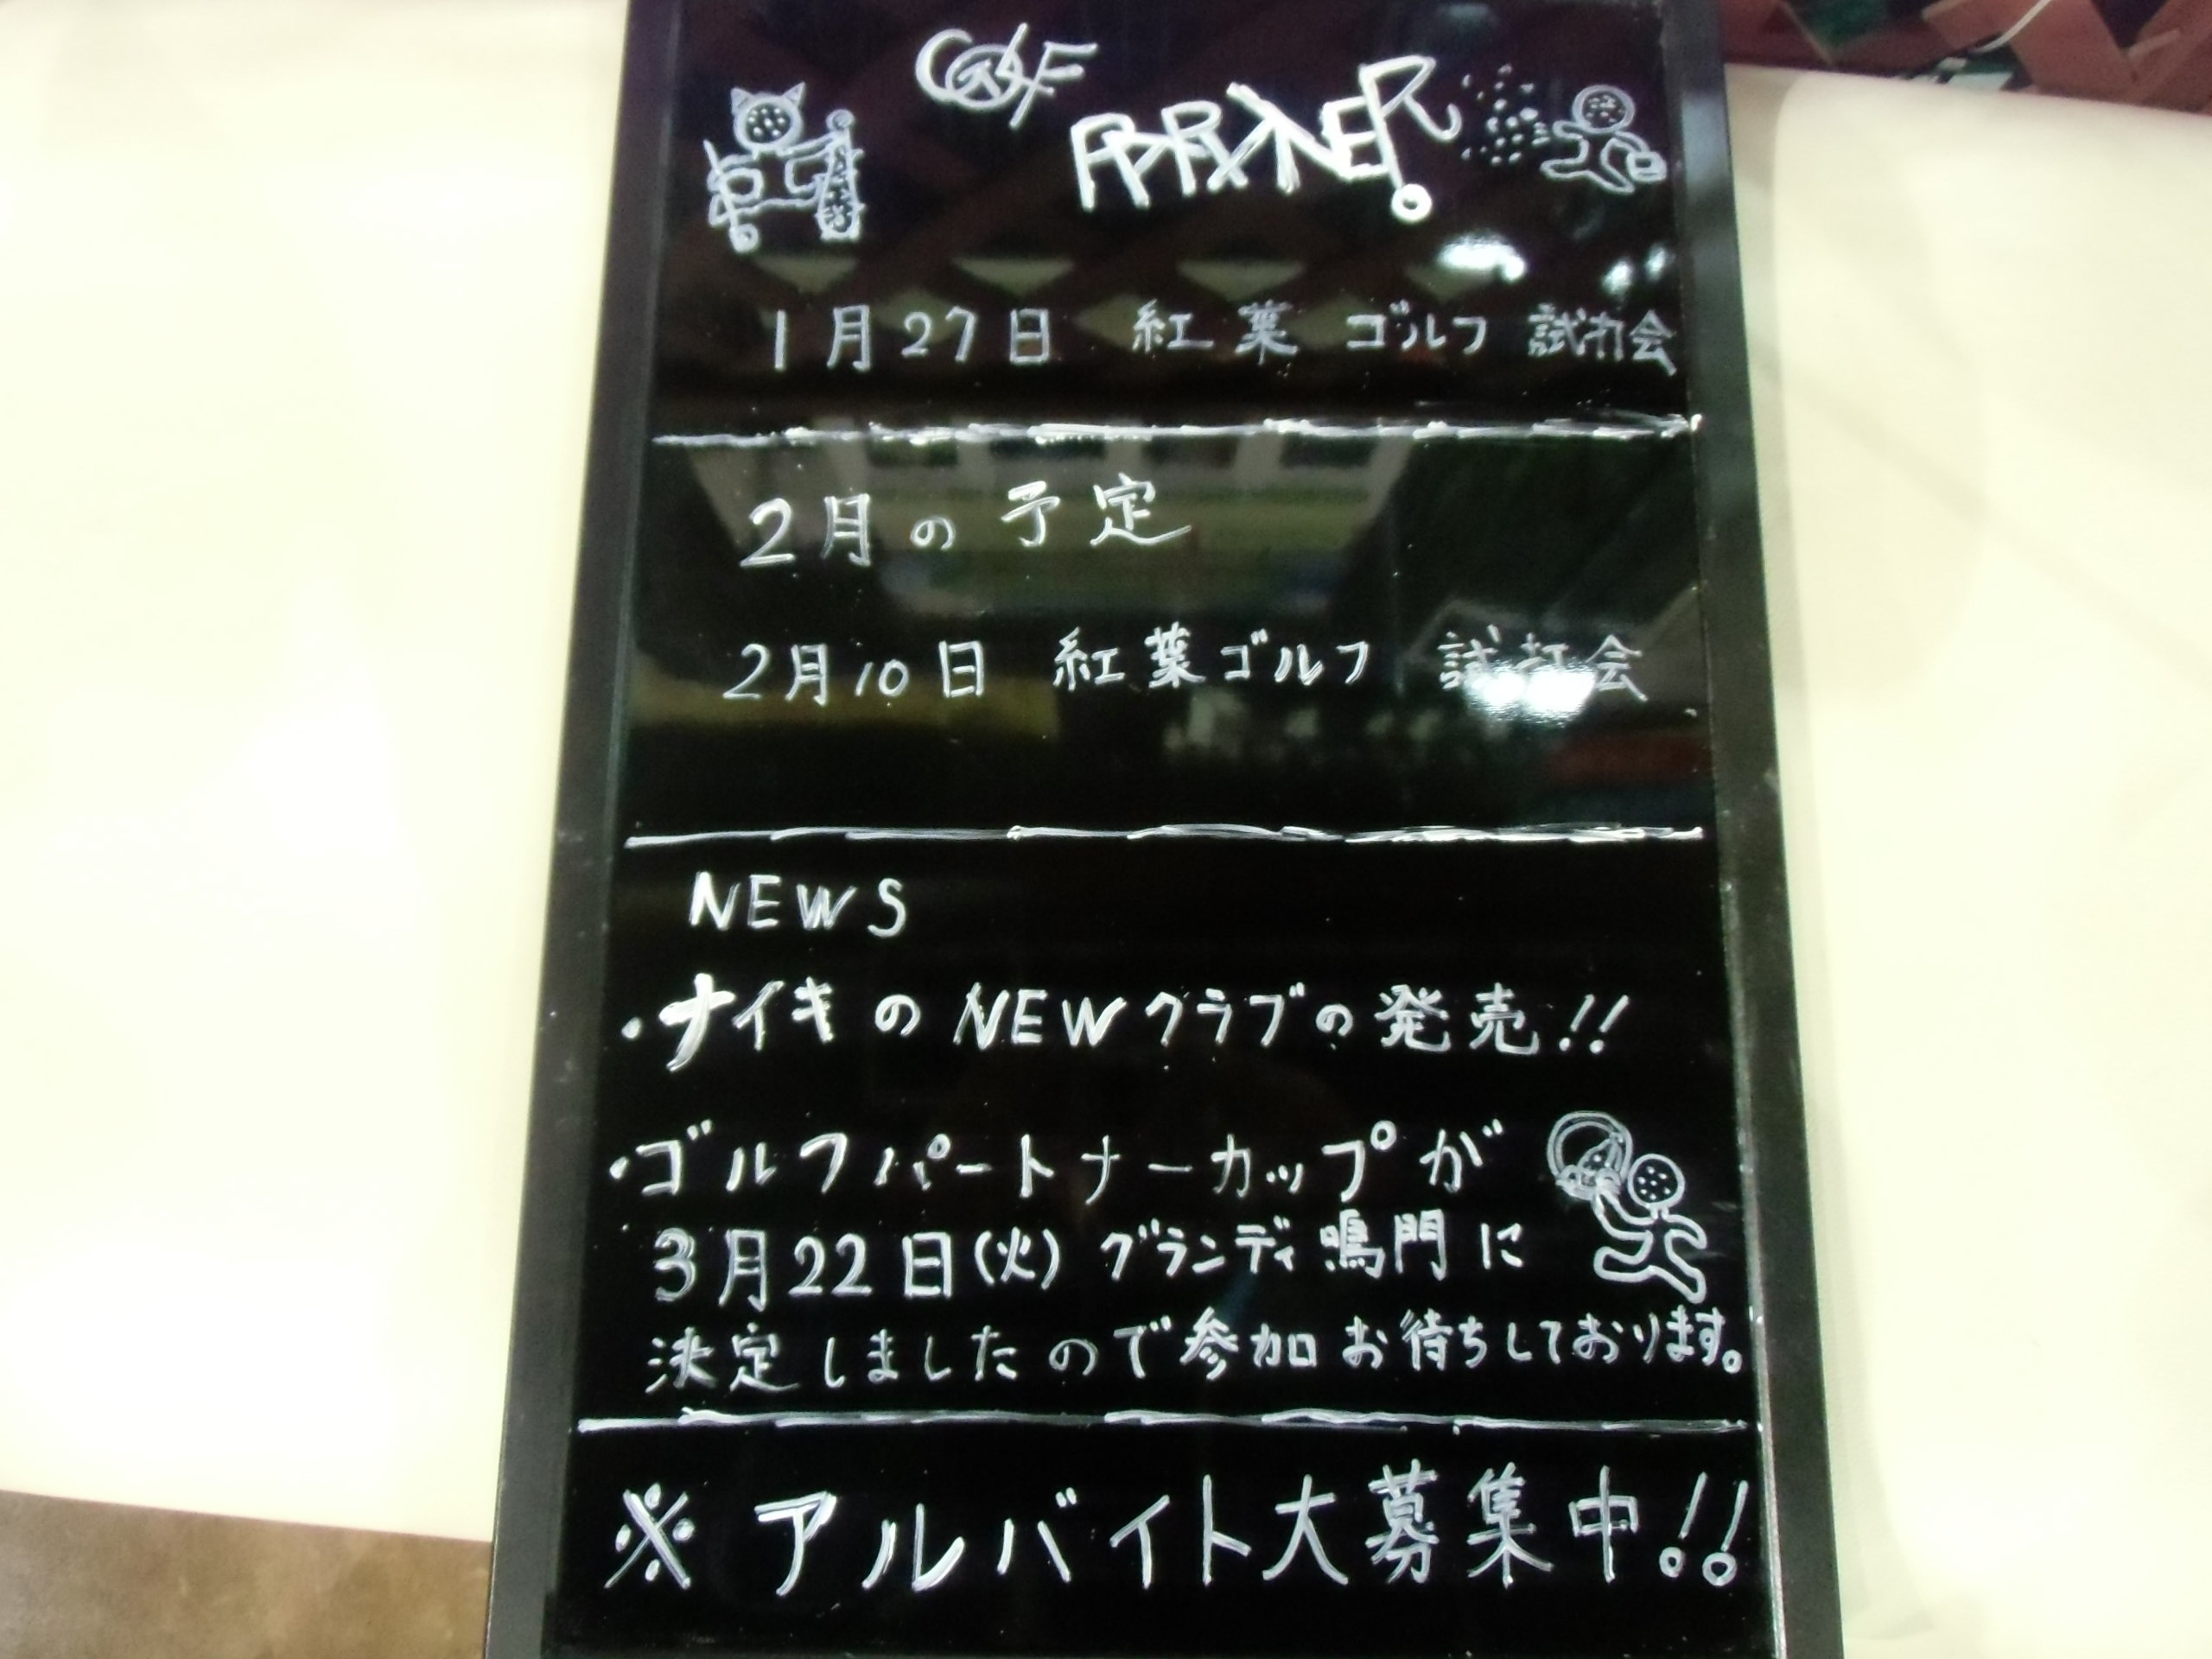 GOLF
PARTNER
1月27日 紅葉ゴルフ 試打会
2月の予定
2月10日 紅葉ゴルフ 試打会
NEWS
・ナイキのNEWクラブの発売!!
・ゴルフパートナーカップが
3月22日(火)グランディ鳴門に
決定しましたので参加お待ちしております。
※アルバイト大募集中!!